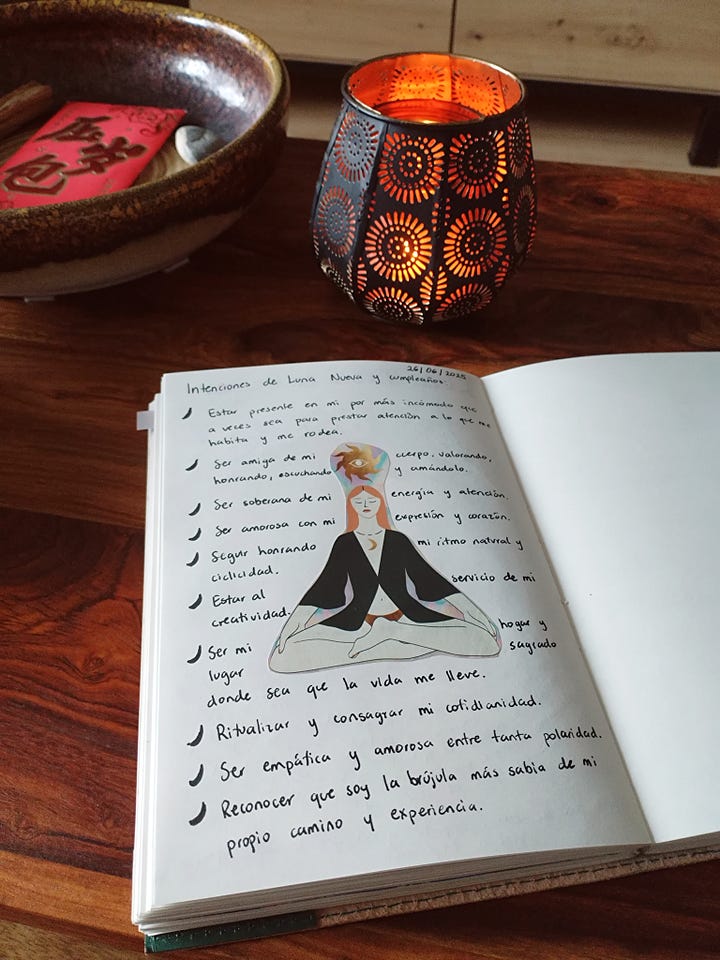 压岁
包
26/06/2025
Intenciones de Luna Nueva y cumpleaños
Estar presente en mi por más incómodo que
a veces sea para prestar atención a lo que me
habita y me rodea.
Ser amiga de mi cuerpo, valorando,
honrando, escuchando y amándolo.
Ser soberana de mi energía y atención.
Ser amorosa con mi expresión y corazón.
Seguir honrando mi ritmo natural y
ciclicidad.
Estar al servicio de mi
creatividad.
Ser mi hogar y
lugar sagrado
donde sea que la vida me lleve.
Ritualizar y consagrar mi cotidianidad.
Ser empática y amorosa entre tanta polaridad.
Reconocer que soy la brújula más sabia de mi
propio camino y experiencia.